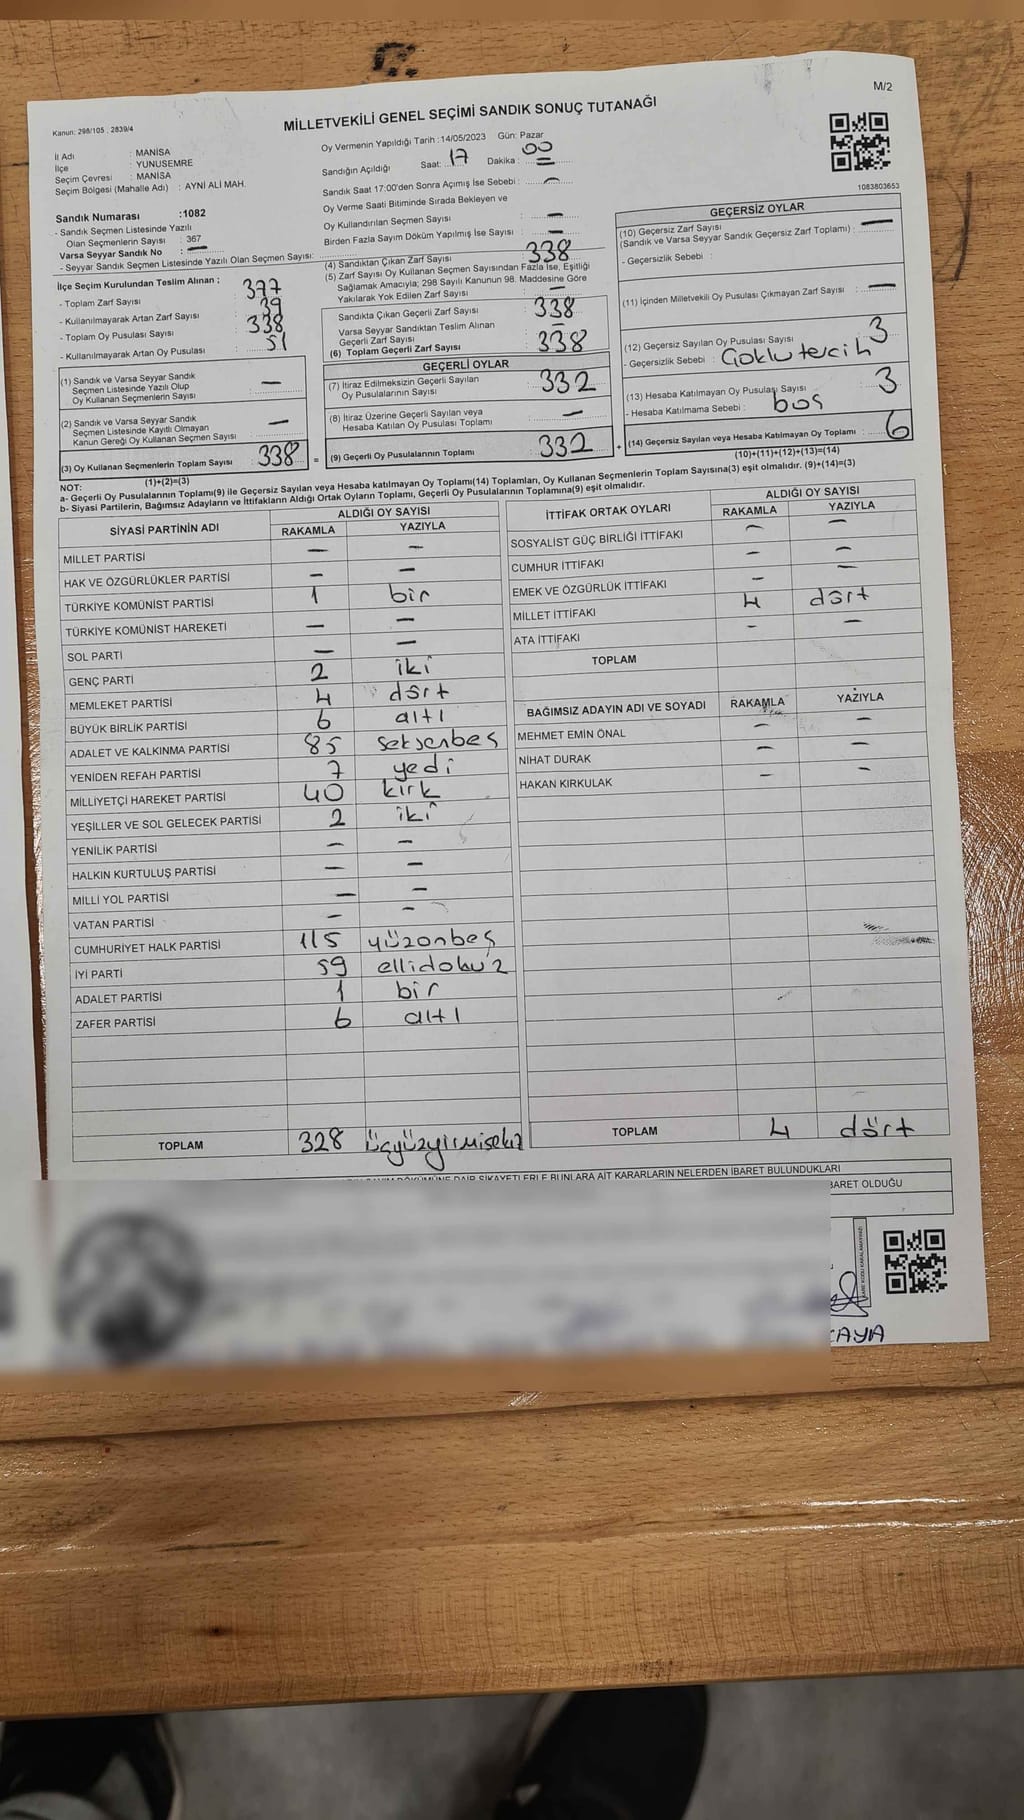 M/2
Kanun: 298/105 , 2839/4
MİLLETVEKİLİ GENEL SEÇİMİ SANDIK SONUÇ TUTANAĞI
İl Adı : MANİSA
İlçe : YUNUSEMRE
Seçim Çevresi : MANİSA
Seçim Bölgesi (Mahalle Adı) : AYNİ ALİ MAH.
Sandık Numarası :1082
- Sandık Seçmen Listesinde Yazılı
Olan Seçmenlerin Sayısı : 367
Varsa Seyyar Sandık No : —
- Seyyar Sandık Seçmen Listesinde Yazılı Olan Seçmen Sayısı:
Oy Vermenin Yapıldığı Tarih :14/05/2023 Gün: Pazar
Sandığın Açıldığı Saat: 17 Dakika : 00
Sandık Saat 17:00'den Sonra Açımış İse Sebebi : —
Oy Verme Saati Bitiminde Sırada Bekleyen ve
Oy Kullandırılan Seçmen Sayısı —
Birden Fazla Sayım Döküm Yapılmış İse Sayısı : —
1083803653
İlçe Seçim Kurulundan Teslim Alınan :
- Toplam Zarf Sayısı : 377
- Kullanılmayarak Artan Zarf Sayısı : 39
- Toplam Oy Pusulası Sayısı : 338
- Kullanılmayarak Artan Oy Pusulası : 51
(1) Sandık ve Varsa Seyyar Sandık
Seçmen Listesinde Yazılı Olup
Oy Kullanan Seçmenlerin Sayısı —
(2) Sandık ve Varsa Seyyar Sandık
Seçmen Listesinde Kayıtlı Olmayan
Kanun Gereği Oy Kullanan Seçmen Sayısı —
(3) Oy Kullanan Seçmenlerin Toplam Sayısı 338 =
(1)+(2)=(3)
(4) Sandıktan Çıkan Zarf Sayısı : 338
(5) Zarf Sayısı Oy Kullanan Seçmen Sayısından Fazla İse, Eşitliği
Sağlamak Amacıyla; 298 Sayılı Kanunun 98. Maddesine Göre
Yakılarak Yok Edilen Zarf Sayısı : —
Sandıkta Çıkan Geçerli Zarf Sayısı 338
Varsa Seyyar Sandıktan Teslim Alınan
Geçerli Zarf Sayısı —
(6) Toplam Geçerli Zarf Sayısı 338
GEÇERLİ OYLAR
(7) İtiraz Edilmeksizin Geçerli Sayılan
Oy Pusulalarının Sayısı : 332
(8) İtiraz Üzerine Geçerli Sayılan veya
Hesaba Katılan Oy Pusulası Toplamı —
(9) Geçerli Oy Pusulalarının Toplamı 332 +
GEÇERSİZ OYLAR
(10) Geçersiz Zarf Sayısı
(Sandık ve Varsa Seyyar Sandık Geçersiz Zarf Toplamı) : —
- Geçersizlik Sebebi :
(11) İçinden Milletvekili Oy Pusulası Çıkmayan Zarf Sayısı : —
(12) Geçersiz Sayılan Oy Pusulası Sayısı : 3
- Geçersizlik Sebebi : Çoklu tercih
(13) Hesaba Katılmayan Oy Pusulası Sayısı 3
- Hesaba Katılmama Sebebi : boş
(14) Geçersiz Sayılan veya Hesaba Katılmayan Oy Toplamı : 6
(10)+(11)+(12)+(13)=(14)
NOT:
a- Geçerli Oy Pusulalarının Toplamı(9) ile Geçersiz Sayılan veya Hesaba katılmayan Oy Toplamı(14) Toplamları, Oy Kullanan Seçmenlerin Toplam Sayısına(3) eşit olmalıdır. (9)+(14)=(3)
b- Siyasi Partilerin, Bağımsız Adayların ve İttifakların Aldığı Ortak Oyların Toplamı, Geçerli Oy Pusulalarının Toplamına(9) eşit olmalıdır.
SİYASİ PARTİNİN ADI ALDIĞI OY SAYISI
RAKAMLA YAZIYLA
MİLLET PARTİSİ — —
HAK VE ÖZGÜRLÜKLER PARTİSİ — —
TÜRKİYE KOMÜNİST PARTİSİ 1 bir
TÜRKİYE KOMÜNİST HAREKETİ — —
SOL PARTİ — —
GENÇ PARTİ 2 iki
MEMLEKET PARTİSİ 4 dört
BÜYÜK BİRLİK PARTİSİ 6 altı
ADALET VE KALKINMA PARTİSİ 85 seksenbeş
YENİDEN REFAH PARTİSİ 7 yedi
MİLLİYETÇİ HAREKET PARTİSİ 40 kırk
YEŞİLLER VE SOL GELECEK PARTİSİ 2 iki
YENİLİK PARTİSİ — —
HALKIN KURTULUŞ PARTİSİ — —
MİLLİ YOL PARTİSİ — —
VATAN PARTİSİ — —
CUMHURİYET HALK PARTİSİ 115 yüzonbeş
İYİ PARTİ 59 ellidokuz
ADALET PARTİSİ 1 bir
ZAFER PARTİSİ 6 altı
TOPLAM 328 üçyüzyirmisekiz
İTTİFAK ORTAK OYLARI ALDIĞI OY SAYISI
RAKAMLA YAZIYLA
SOSYALİST GÜÇ BİRLİĞİ İTTİFAKI — —
CUMHUR İTTİFAKI — —
EMEK VE ÖZGÜRLÜK İTTİFAKI — —
MİLLET İTTİFAKI 4 dört
ATA İTTİFAKI — —
TOPLAM
BAĞIMSIZ ADAYIN ADI VE SOYADI RAKAMLA YAZIYLA
MEHMET EMİN ÖNAL — —
NİHAT DURAK — —
HAKAN KIRKULAK — —
TOPLAM 4 dört
DAİR ŞİKAYETLERLE BUNLARA AİT KARARLARIN NELERDEN İBARET BULUNDUKLARI
BARET OLDUĞU
KAYA